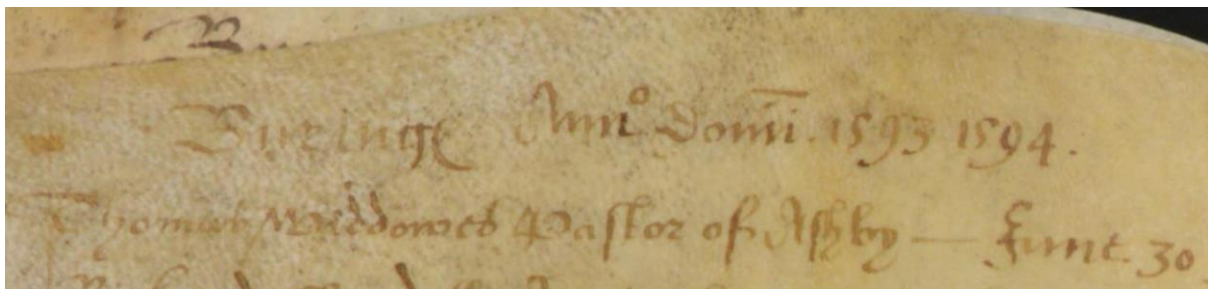 Bu
Buringe Anno Domī. 1593 1594.
Thomas Meddowes Pastor of Ashby — June 30